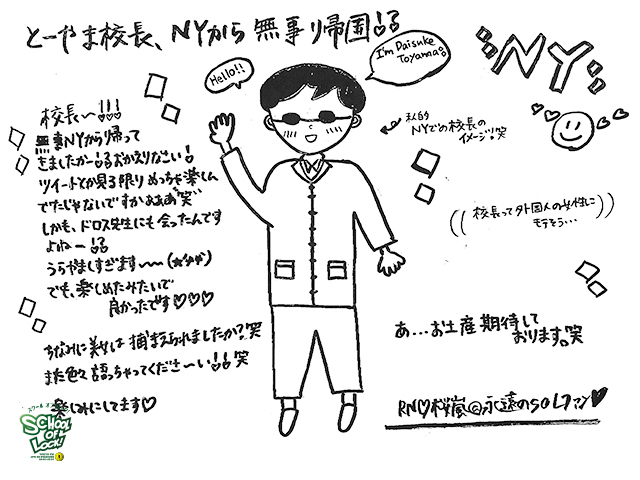 とーやま校長、NYから無事帰国!!
Hello!!
I'm Daisuke Toyama!!
NY
校長〜!!!
無事NYから帰って
きましたかー!!おかえりなさい!
ツイートとか見る限りめっちゃ楽しん
でたじゃないですかぁぁぁ笑
しかも、ドロス先生にも会ったんです
よねー!!
うらやましすぎます〜〜
でも、楽しめたみたいで
良かったです♡♡♡
ちなみに美女は捕まえられましたか?笑
また色々語っちゃってくださーい!!笑
楽しみにしてます♡
私的
NYでの校長の
イメージ!笑
((校長って外国人の女性に
モテそう…))
あ…お土産期待して
おります。笑
RN♡桜嵐@永遠のSOLファン♥
スクール オブ
SCHOOL OF LOCK!